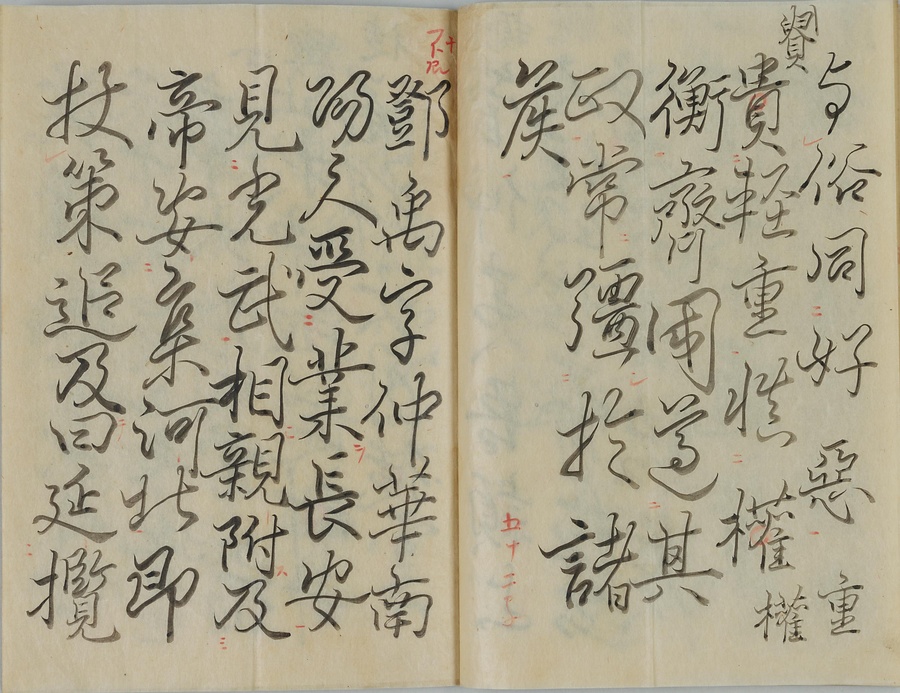 与俗同好惡
重
貴輕重慎權
權
衡齊國遵其
政常彊於諸
侯
五十二字
鄧禹字仲華南
陽人受業長安
見光武相親附及
帝安集河北即
杖策追及曰延攬